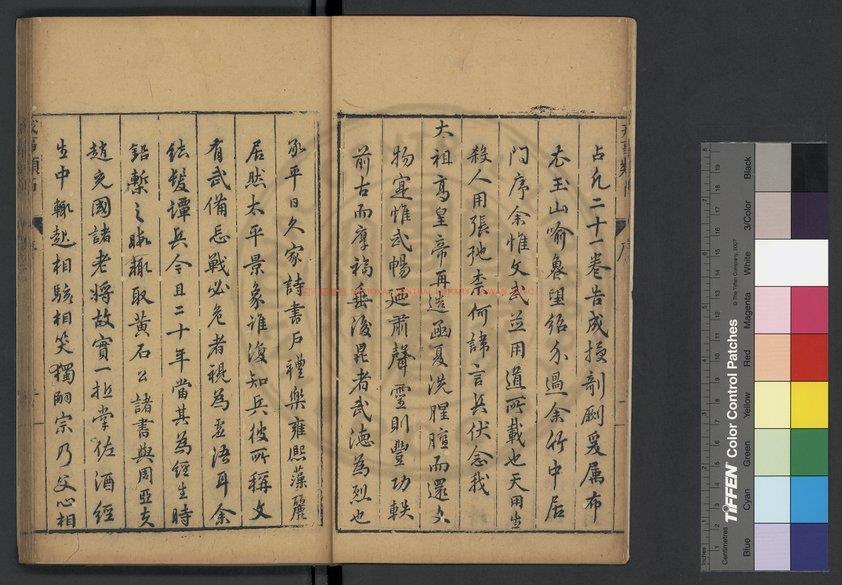 占凡二十一卷告成授剞劂爰属布
衣玉山喻魯望紹介過余竹中居
門序余惟文武並用道所載也天用生
殺人用張弛柰何諱言兵伏念我
太祖高皇帝再造函夏洗腥膻而還文
物寔惟武暢廼肅聲靈則豐功軼
前古而摩福垂後昆者武德為烈也
承平日久家詩書戶禮樂雍熙藻麗
居然太平景象誰復知兵彼所稱文
有武備忘戰必危者視為虛語耳余
結髮譚兵今且二十年當其為經生時
鉛槧之暇輒取黃石公諸書與周亞夫
趙充國諸老將故實一抵掌佐酒經
生中輒起相駭相笑獨嗣宗乃父心相
TIFFEN Color Control Patches
© The Tiffen Company, 2007
Blue Cyan Green Yellow Red Magenta White 3/Color Black
Inches
Centimetres